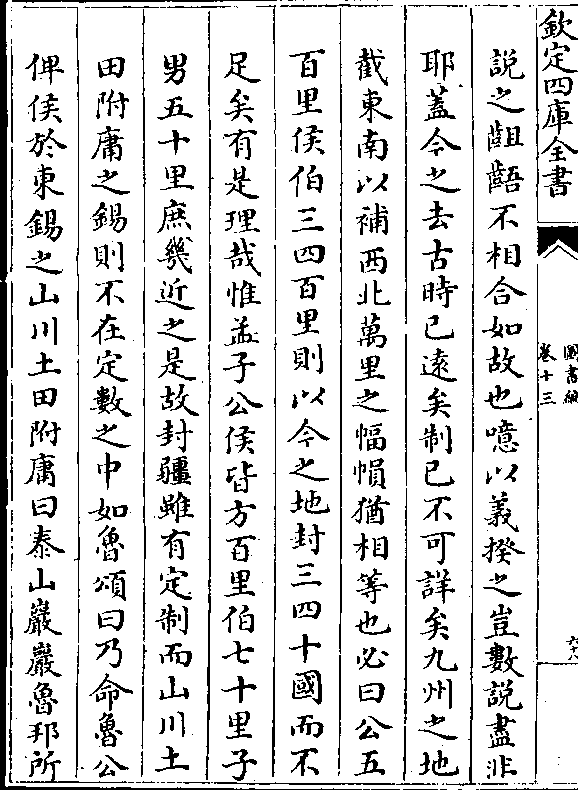 欽定四庫全書
圖書編
卷十三
六十八
說之齟齬不相合如故也噫以義揆之豈數說盡非
耶蓋今之去古時已遠矣制已不可詳矣九州之地
截東南以補西北萬里之幅幀猶相等也必曰公五
百里侯伯三四百里則以今之地封三四十國而不
足矣有是理哉惟孟子公侯皆方百里伯七十里子
男五十里庶幾近之是故封疆雖有定制而山川土
田附庸之錫則不在定數之中如魯頌曰乃命魯公
俾侯於東錫之山川土田附庸曰泰山巖巖魯邦所